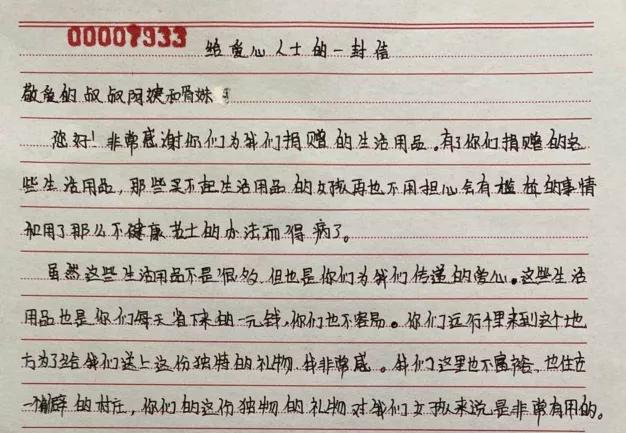 00007933
给爱心人士的一封信
敬爱的叔叔阿姨和哥姝
您好！非常感谢你们为我们捐赠的生活用品。有了你们捐赠的这
些生活用品，那些买不起生活用品的女孩再也不用担心会有尴尬的事情
和用了那么不健康芷士的办法而得病了。
虽然这些生活用品不是很多，但也是你们为我们传递的爱心。这些生活
用品也是你们每天省下来的一元钱，你们也不容易。你们远行千里来到这个地
方为了给我们送上这份独特的礼物，我非常感。我们这里也不富裕，也住在
一个偏僻的村庄，你们的这份独物的礼物对我们女孩来说是非常有用的。